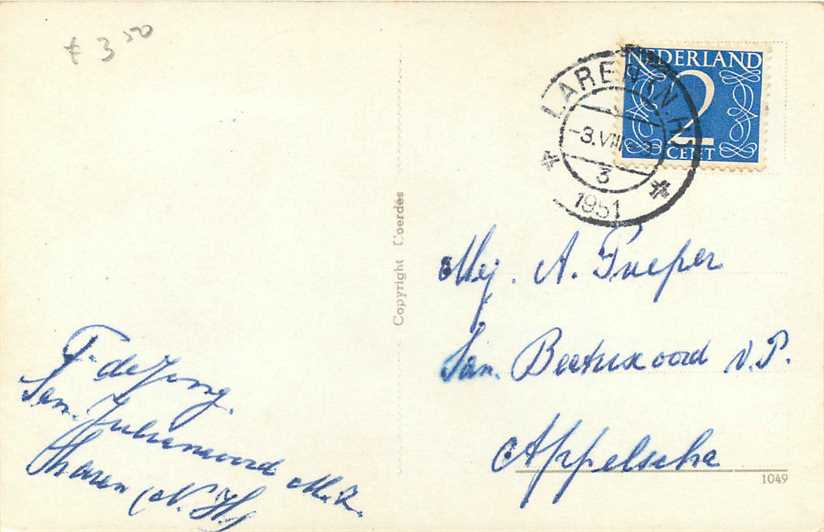 ƒ 3 50
NEDERLAND
2
CENT
LAREN (N.H)
-3.VIII
3
1951
Copyright Coerdes
Mej. A. Pueper
San. Beetsterzwoord v.P.
Appelscha
1049
F. de Jong.
San. Julianaoord
Laren (N.H.)